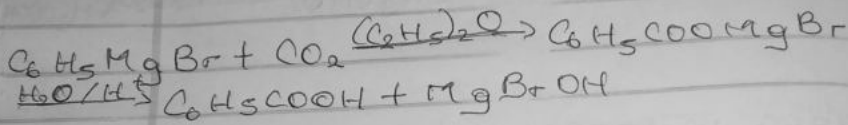 C6H5MgBr + CO2 (C2H5)2O → C6H5COOMgBr
H2O/H+ → C6H5COOH + MgBrOH